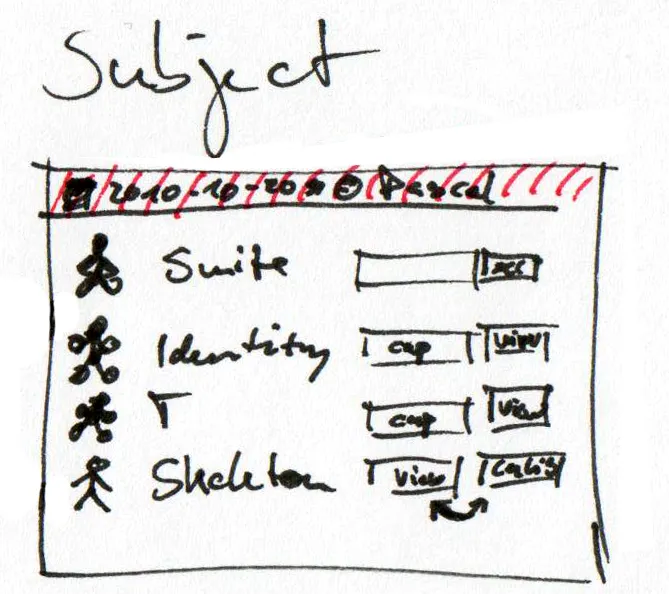 Subject
2010-10-20 Pascal
Suite
Identity cap view
T cap view
Skeleton view